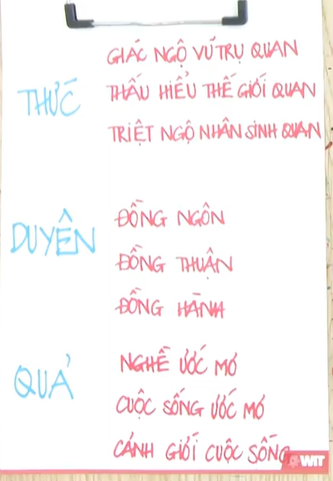 GIÁC NGỘ VŨ TRỤ QUAN
THỨC
THẤU HIỂU THẾ GIỚI QUAN
TRIỆT NGỘ NHÂN SINH QUAN
ĐỒNG NGÔN
DUYÊN
ĐỒNG THUẬN
ĐỒNG HÀNH
NGHỀ ƯỚC MƠ
QUẢ
CUỘC SỐNG ƯỚC MƠ
CẢNH GIỚI CUỘC SỐNG
WIT